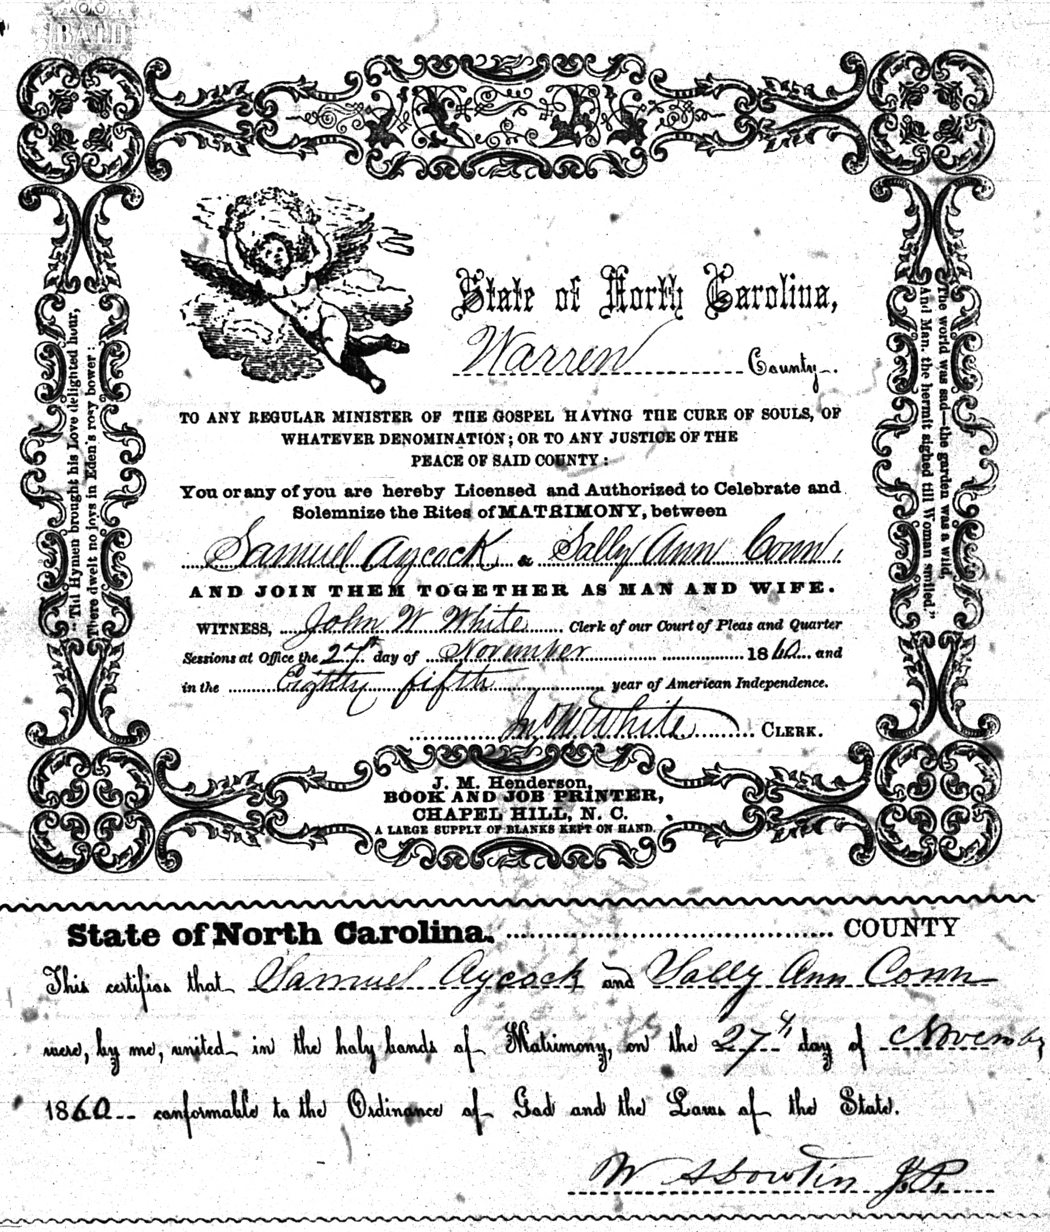 BATH
State of North Carolina,
Warren County.
TO ANY REGULAR MINISTER OF THE GOSPEL HAVING THE CURE OF SOULS, OF
WHATEVER DENOMINATION; OR TO ANY JUSTICE OF THE
PEACE OF SAID COUNTY:
You or any of you are hereby Licensed and Authorized to Celebrate and
Solemnize the Rites of MATRIMONY, between
Samuel Aycock & Sally Ann Conn,
AND JOIN THEM TOGETHER AS MAN AND WIFE.
WITNESS, John W White Clerk of our Court of Pleas and Quarter
Sessions at Office the 27th day of November 1860 and
in the Eighty fifth year of American Independence.
Jno W White CLERK.
"'Till Hymen brought his Love delighted hour,
There dwelt no joys in Eden's rosy bower:
The world was sad—the garden was a wild,
And Man, the hermit sighed till Woman smiled."
J. M. Henderson,
BOOK AND JOB PRINTER,
CHAPEL HILL, N. C.
A LARGE SUPPLY OF BLANKS KEPT ON HAND.
State of North Carolina. COUNTY
This certifies that Samuel Aycock and Sally Ann Conn
were, by me, united in the holy bands of Matrimony, on the 27th day of November
1860 conformable to the Ordinance of God and the Laws of the State.
W A Dowtin J.P.